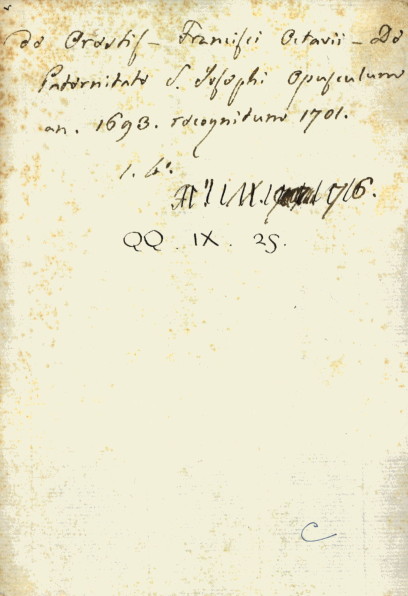 de Orestis - Francisci Octavii - De
Paternitate S. Josephi Opusculum
an. 1693. recognitum 1701.
1. b.
1716.
QQ. IX. 25.
C